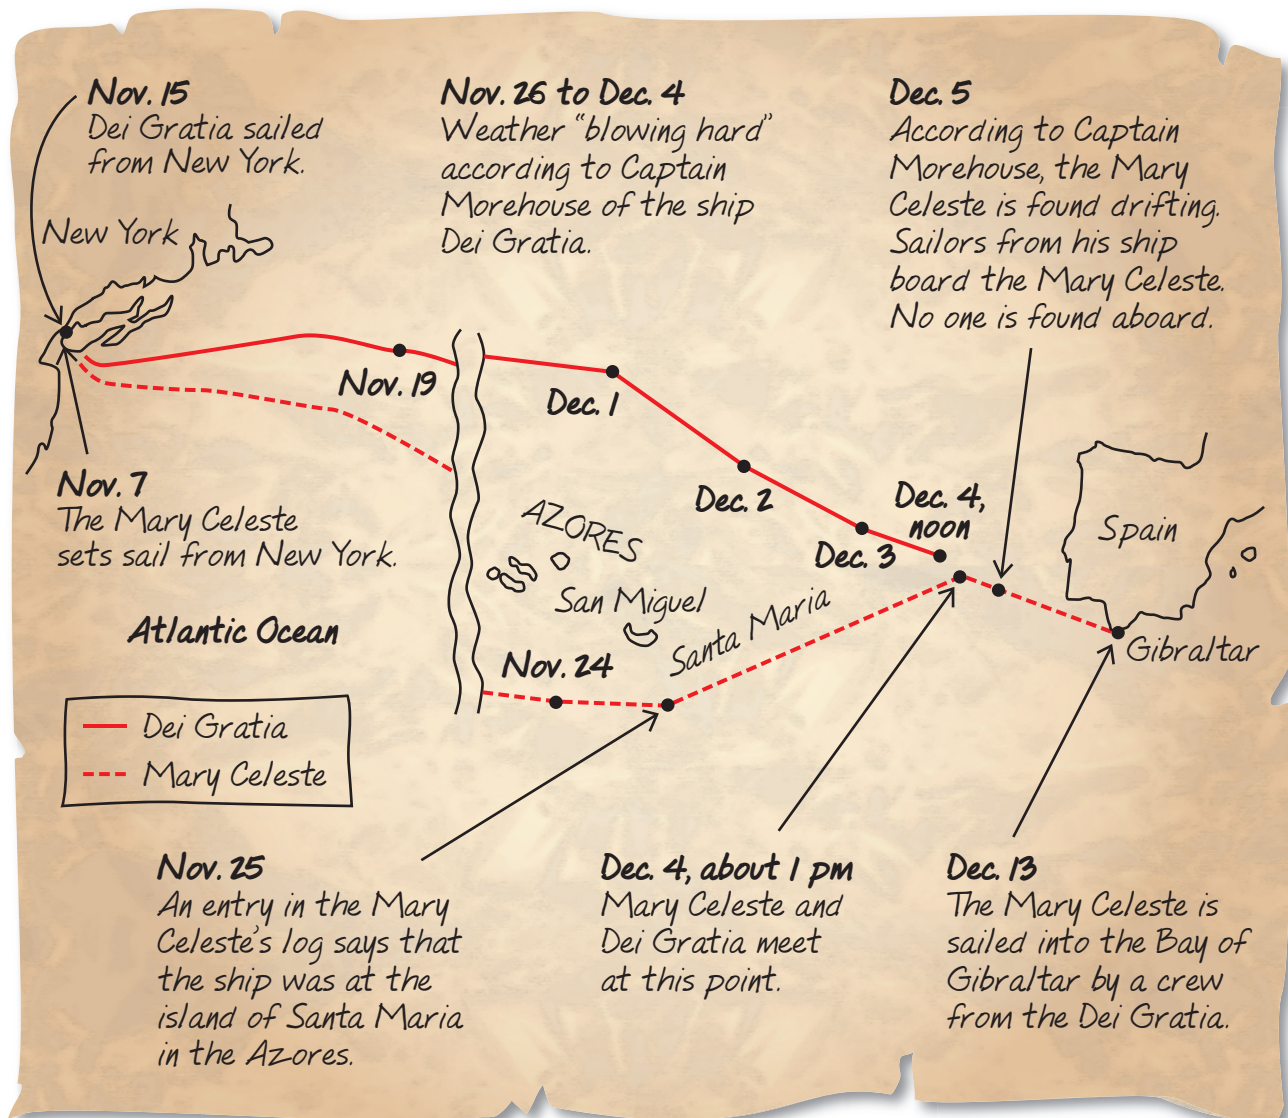 Nov. 15
Dei Gratia sailed
from New York.
Nov. 26 to Dec. 4
Weather “blowing hard”
according to Captain
Morehouse of the ship
Dei Gratia.
Dec. 5
According to Captain
Morehouse, the Mary
Celeste is found drifting.
Sailors from his ship
board the Mary Celeste.
No one is found aboard.
New York
Nov. 19
Dec. 1
Dec. 2
Dec. 3
Dec. 4,
noon
Spain
Gibraltar
Nov. 7
The Mary Celeste
sets sail from New York.
AZORES
San Miguel
Santa Maria
Atlantic Ocean
Nov. 24
Dei Gratia
Mary Celeste
Nov. 25
An entry in the Mary
Celeste’s log says that
the ship was at the
island of Santa Maria
in the Azores.
Dec. 4, about 1 pm
Mary Celeste and
Dei Gratia meet
at this point.
Dec. 13
The Mary Celeste is
sailed into the Bay of
Gibraltar by a crew
from the Dei Gratia.